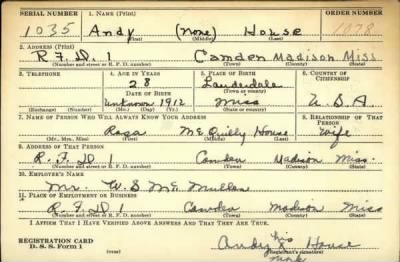 SERIAL NUMBER 1. NAME (Print) ORDER NUMBER
1035 Andy (None) House 1078
(First) (Middle) (Last)
2. ADDRESS (Print)
R.F.D. 1 Camden Madison Miss
(Number and street or R. F. D. number) (Town) (County) (State)
3. TELEPHONE 4. AGE IN YEARS 5. PLACE OF BIRTH 6. COUNTRY OF CITIZENSHIP
28 Lauderdale
DATE OF BIRTH (Town or county)
Unknown 1912 Miss U.S.A.
(Exchange) (Number) (Mo.) (Day) (Yr.) (State or country)
7. NAME OF PERSON WHO WILL ALWAYS KNOW YOUR ADDRESS 8. RELATIONSHIP OF THAT PERSON
House Wife
(Mr., Mrs., Miss) (First) (Middle) (Last)
9. ADDRESS OF THAT PERSON
R.F.D 1 Camden Madison Miss.
(Number and street or R. F. D. number) (Town) (County) (State)
10. EMPLOYER'S NAME
Mr. W.S. McMullen
11. PLACE OF EMPLOYMENT OR BUSINESS
R.F.D 1 Camden Madison Miss
(Number and street or R. F. D. number) (Town) (County) (State)
I AFFIRM THAT I HAVE VERIFIED ABOVE ANSWERS AND THAT THEY ARE TRUE.
REGISTRATION CARD
D. S. S. Form 1
(over)
his
Andy X House
mark
(Registrant's signature)